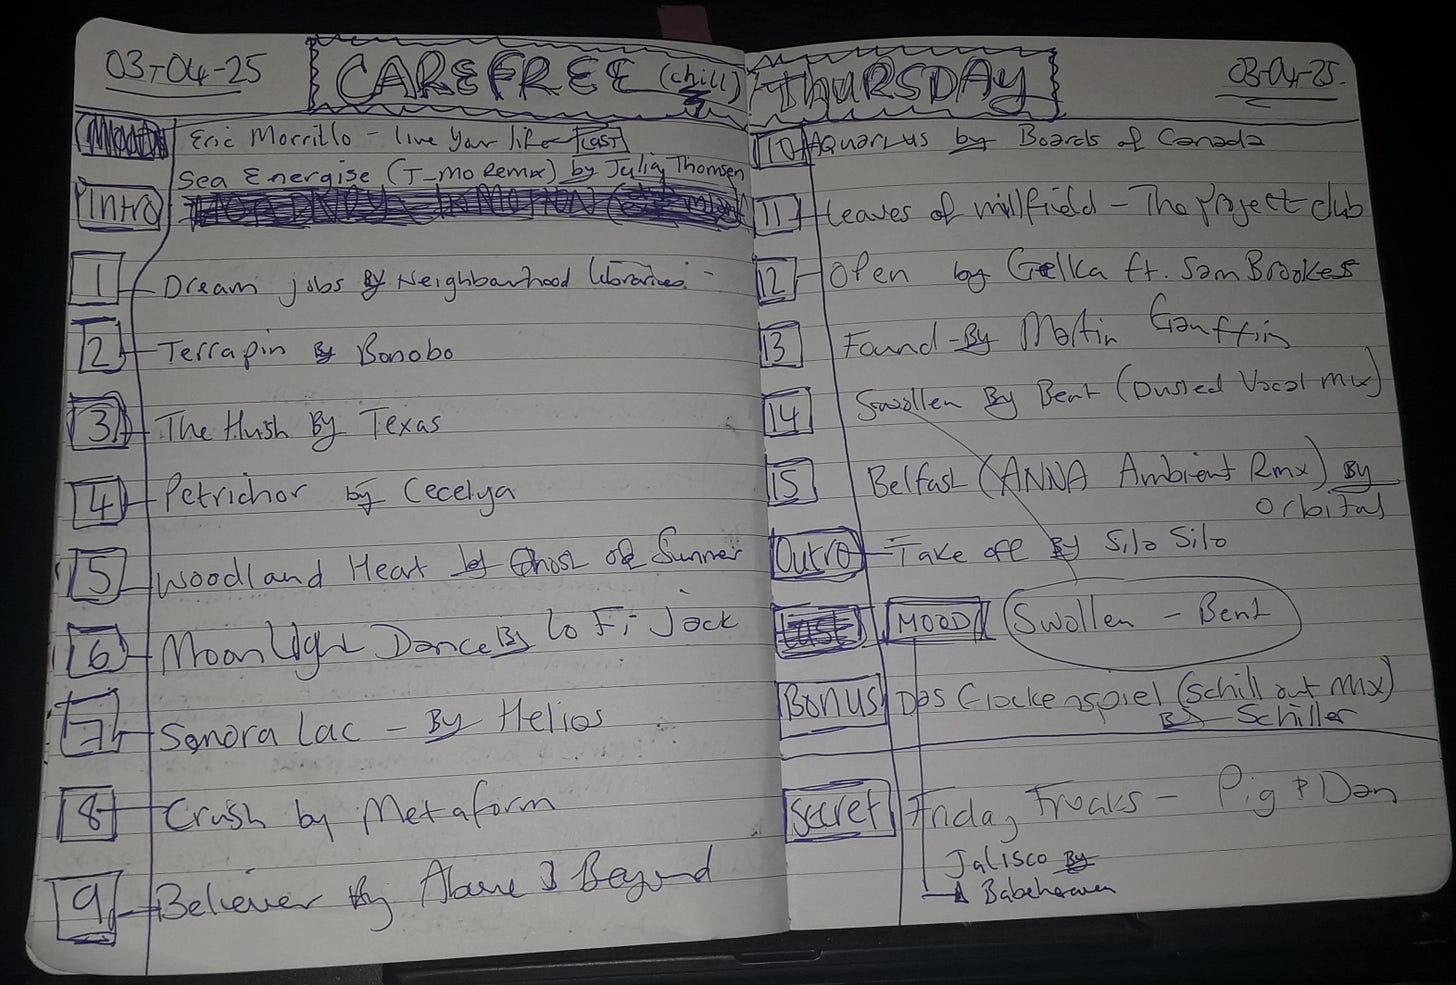 03-04-25
CAREFREE (chill)
Eric Morrillo - live your life Last
Sea Energise (T-mo Remix) by Julia Thomsen
Intro
1 Dream jobs By Neighbourhood libraries
2 Terrapin By Bonobo
3 The Hush By Texas
4 Petrichor by Cecelya
5 Woodland Heart by Ghost of Summer
6 MoonLight Dance By Lo Fi Jack
7 Sonora Lac - By Helios
8 Crush by Metaform
9 Believer By Above & Beyond
THURSDAY
03-04-25.
10 Aquarius by Boards of Canada
11 Leaves of millfield - The project club
12 Open by Gelka ft. Sam Brookes
13 Found - By Martin
14 Swollen By Bent (Dusted Vocal mix)
15 Belfast (ANNA Ambient Rmx) By
Orbital
Outro Take off By Silo Silo
Last MOOD Swollen - Bent
Bonus Das Glockenspiel (Schill out mix)
By Schiller
Secret Friday Freaks - Pig & Dan
Jalisco By
Babeheaven